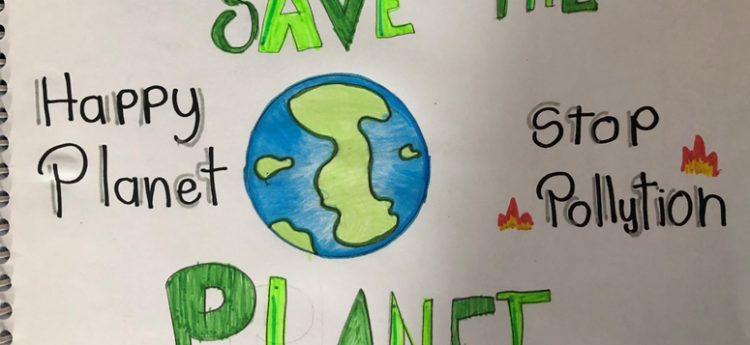 SAVE THE
Happy
Planet
Stop
Pollytion
PLANET